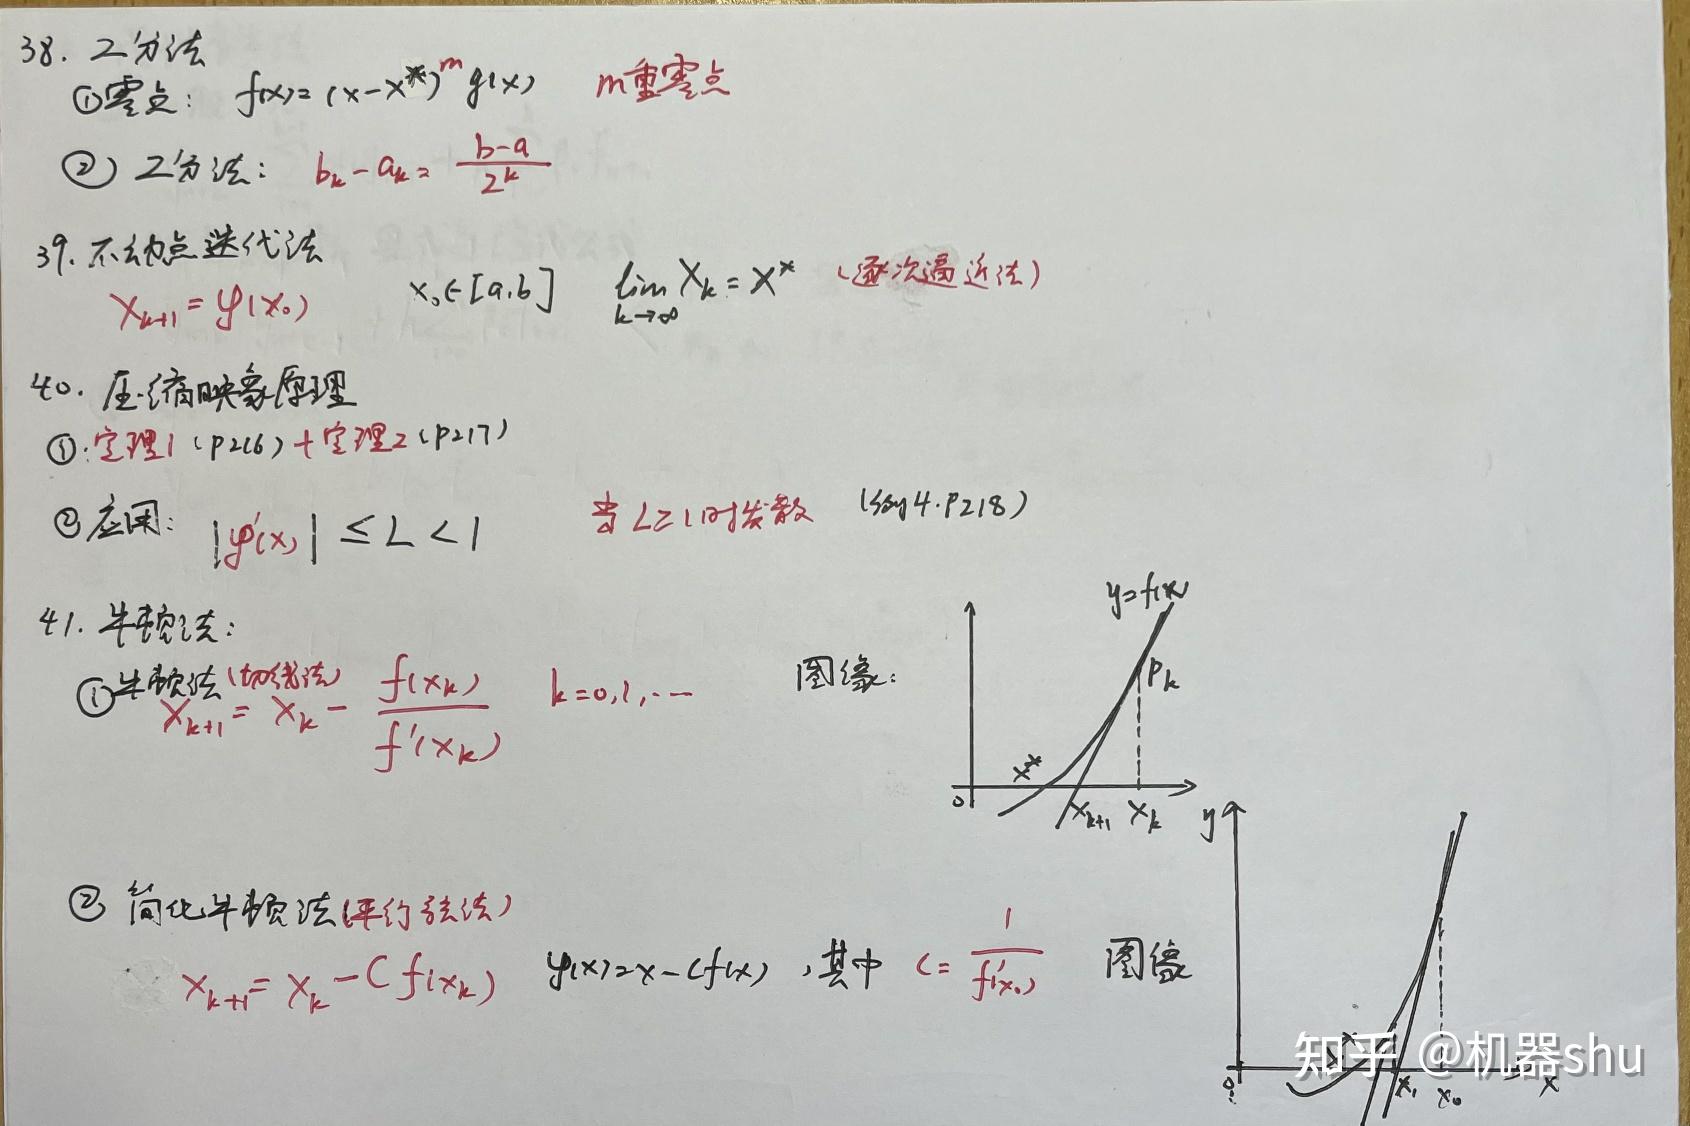 38. 二分法
①零点: f(x)=(x-x*)^m g(x) m重零点
② 二分法: b_k-a_k=\frac{b-a}{2^k}
39. 不动点迭代法
x_{k+1}=φ(x_0) x_0∈[a,b] lim_{k→∞} x_k=x* (逐次逼近法)
40. 压缩映象原理
①:定理1(P216)+定理2(P217)
②应用: |φ'(x)|≤L<1 当L≥1时发散 (例4.P218)
41. 牛顿法:
①牛顿法(切线法)
x_{k+1}=x_k-\frac{f(x_k)}{f'(x_k)} k=0,1,... 图像:
y=f(x)
P_k
x*
0 x_{k+1} x_k
② 简化牛顿法(平行弦法)
x_{k+1}=x_k-Cf(x_k) φ(x)=x-Cf(x),其中 C=\frac{1}{f'(x_0)} 图像
y
x*
0 x_1 x_0 x
知乎 @机器shu